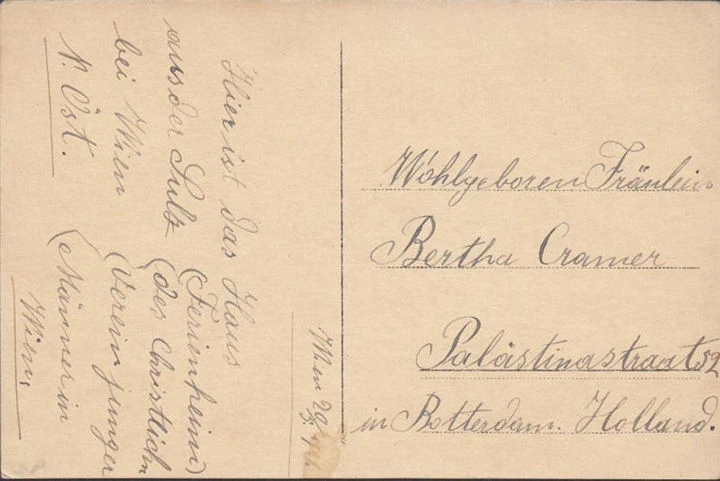 Wien 29.
Hier ist das Haus
aus der Sulz (Ferienheim)
bei Wien (des Christlichn
N. Öst. (Verein junger
(Männer in
Wien.
Wohlgeboren Fräulein
Bertha Cramer
Palästinastraat 52
in Rotterdam. Holland.